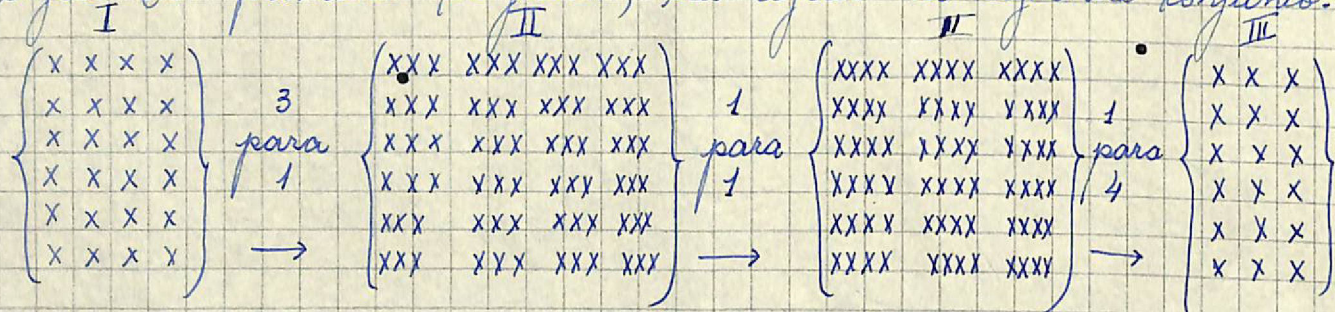 I II II III
X X X X XXX XXX XXX XXX XXXX XXXX XXXX X X X
X X X X 3 XXX XXX XXX XXX 1 XXXX XXXX XXXX 1 X X X
X X X X para XXX XXX XXX XXX para XXXX XXXX XXXX para X X X
X X X X 1 XXX XXX XXX XXX 1 XXXX XXXX XXXX 4 X X X
X X X X XXX XXX XXX XXX XXXX XXXX XXXX X X X
X X X X → XXX XXX XXX XXX → XXXX XXXX XXXX → X X X